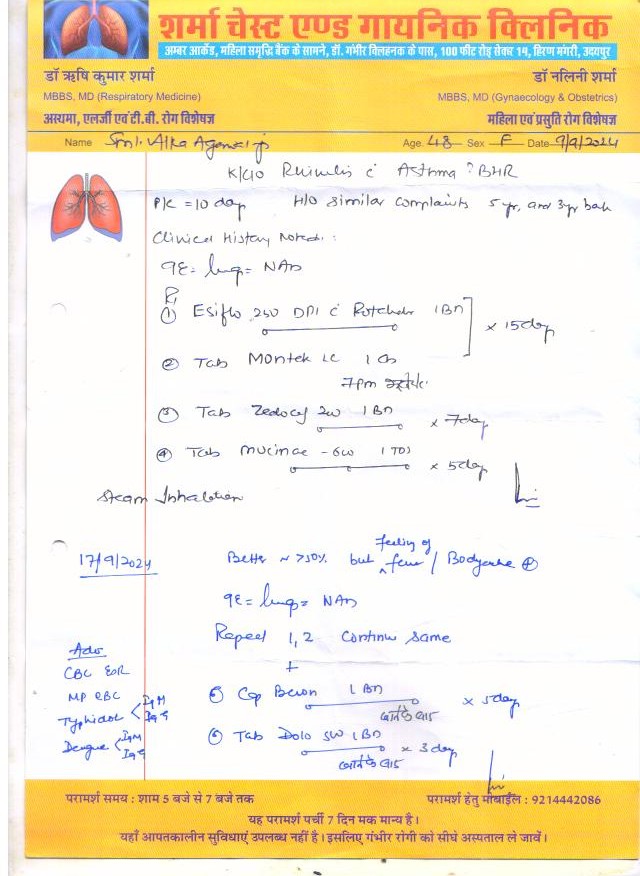 शर्मा चेस्ट एण्ड गायनिक क्लिनिक
अम्बर आर्केड, महिला समृद्धि बैंक के सामने, डॉ. गंभीर क्लिनिक के पास, 100 फीट रोड़ सेक्टर 14, हिरण मंगरी, उदयपुर
डॉ ऋषि कुमार शर्मा
MBBS, MD (Respiratory Medicine)
अस्थमा, एलर्जी एवं टी.बी. रोग विशेषज्ञ
डॉ नलिनी शर्मा
MBBS, MD (Gynaecology & Obstetrics)
महिला एवं प्रसुति रोग विशेषज्ञ
Name Smt. Alka Agarwal ji Age. 48 Sex F Date 9/9/2024
K/C/O Rhinitis c̄ Asthma ? BHR
= 10 day H/O similar complaints 5 yr, and 3yr back
Clinical History Noted:
= lung = NAD
Rx
① 250 DPI c̄ Rotahaler 1 BD
x 15 day
② Tab Montek LC 1 OD
7pm
③ Tab 200 1 BD x 7 day
④ Tab Mucinac - 600 1 TDS x 5 day
Steam Inhalation
17/9/2024
Better ~ >50% but feeling of fever / Bodyache ⊕
= lung = NAD
Repeat 1, 2 Continue same
+
⑤ Cap 1 BD x 5 day
खाने के बाद
⑥ Tab Dolo 500 1 BD x 3 day
खाने के बाद
Adv
CBC ESR
MP
Typhidot IgM
IgG
Dengue IgM
IgG
परामर्श समय : शाम 5 बजे से 7 बजे तक
परामर्श हेतु मोबाईल : 9214442086
यह परामर्श पर्ची 7 दिन मक मान्य है।
यहाँ आपतकालीन सुविधाएं उपलब्ध नहीं है। इसलिए गंभीर रोगी को सीधे अस्पताल ले जावें।